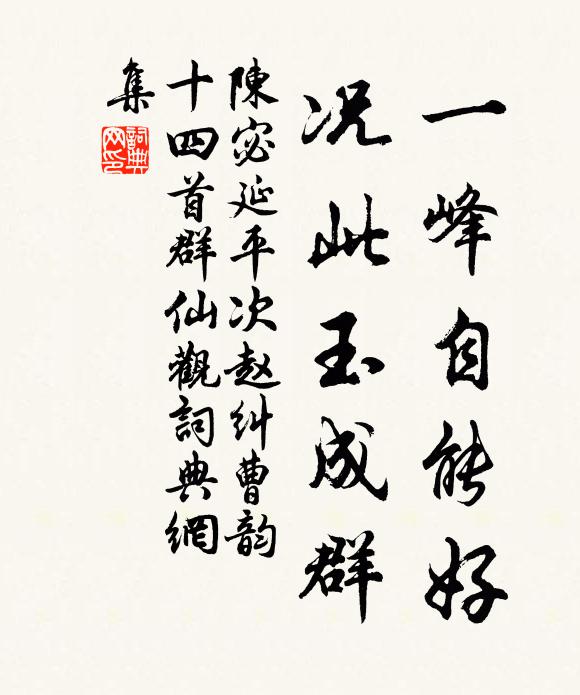 一峰自能好
况此玉成群
陳宓延平次赵糾曹韵
十四首群仙觀詞典網
集
詞典网印